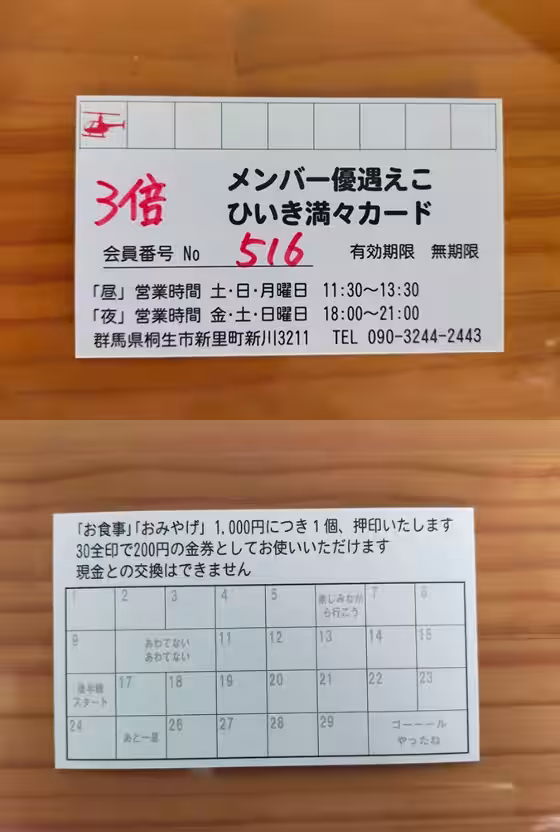 3倍
メンバー優遇えこ
ひいき満々カード
会員番号 No 516 有効期限 無期限
「昼」営業時間 土・日・月曜日 11:30～13:30
「夜」営業時間 金・土・日曜日 18:00～21:00
群馬県桐生市新里町新川3211 TEL 090-3244-2443
「お食事」「おみやげ」1,000円につき1個、押印いたします
30全印で200円の金券としてお使いいただけます
現金との交換はできません
1 2 3 4 5 楽しみなが 7 8
ら行こう
9 あわてない 11 12 13 14 15
あわてない
後半戦 17 18 19 20 21 22 23
スタート
24 あと一息 26 27 28 29 ゴーーール
やったね